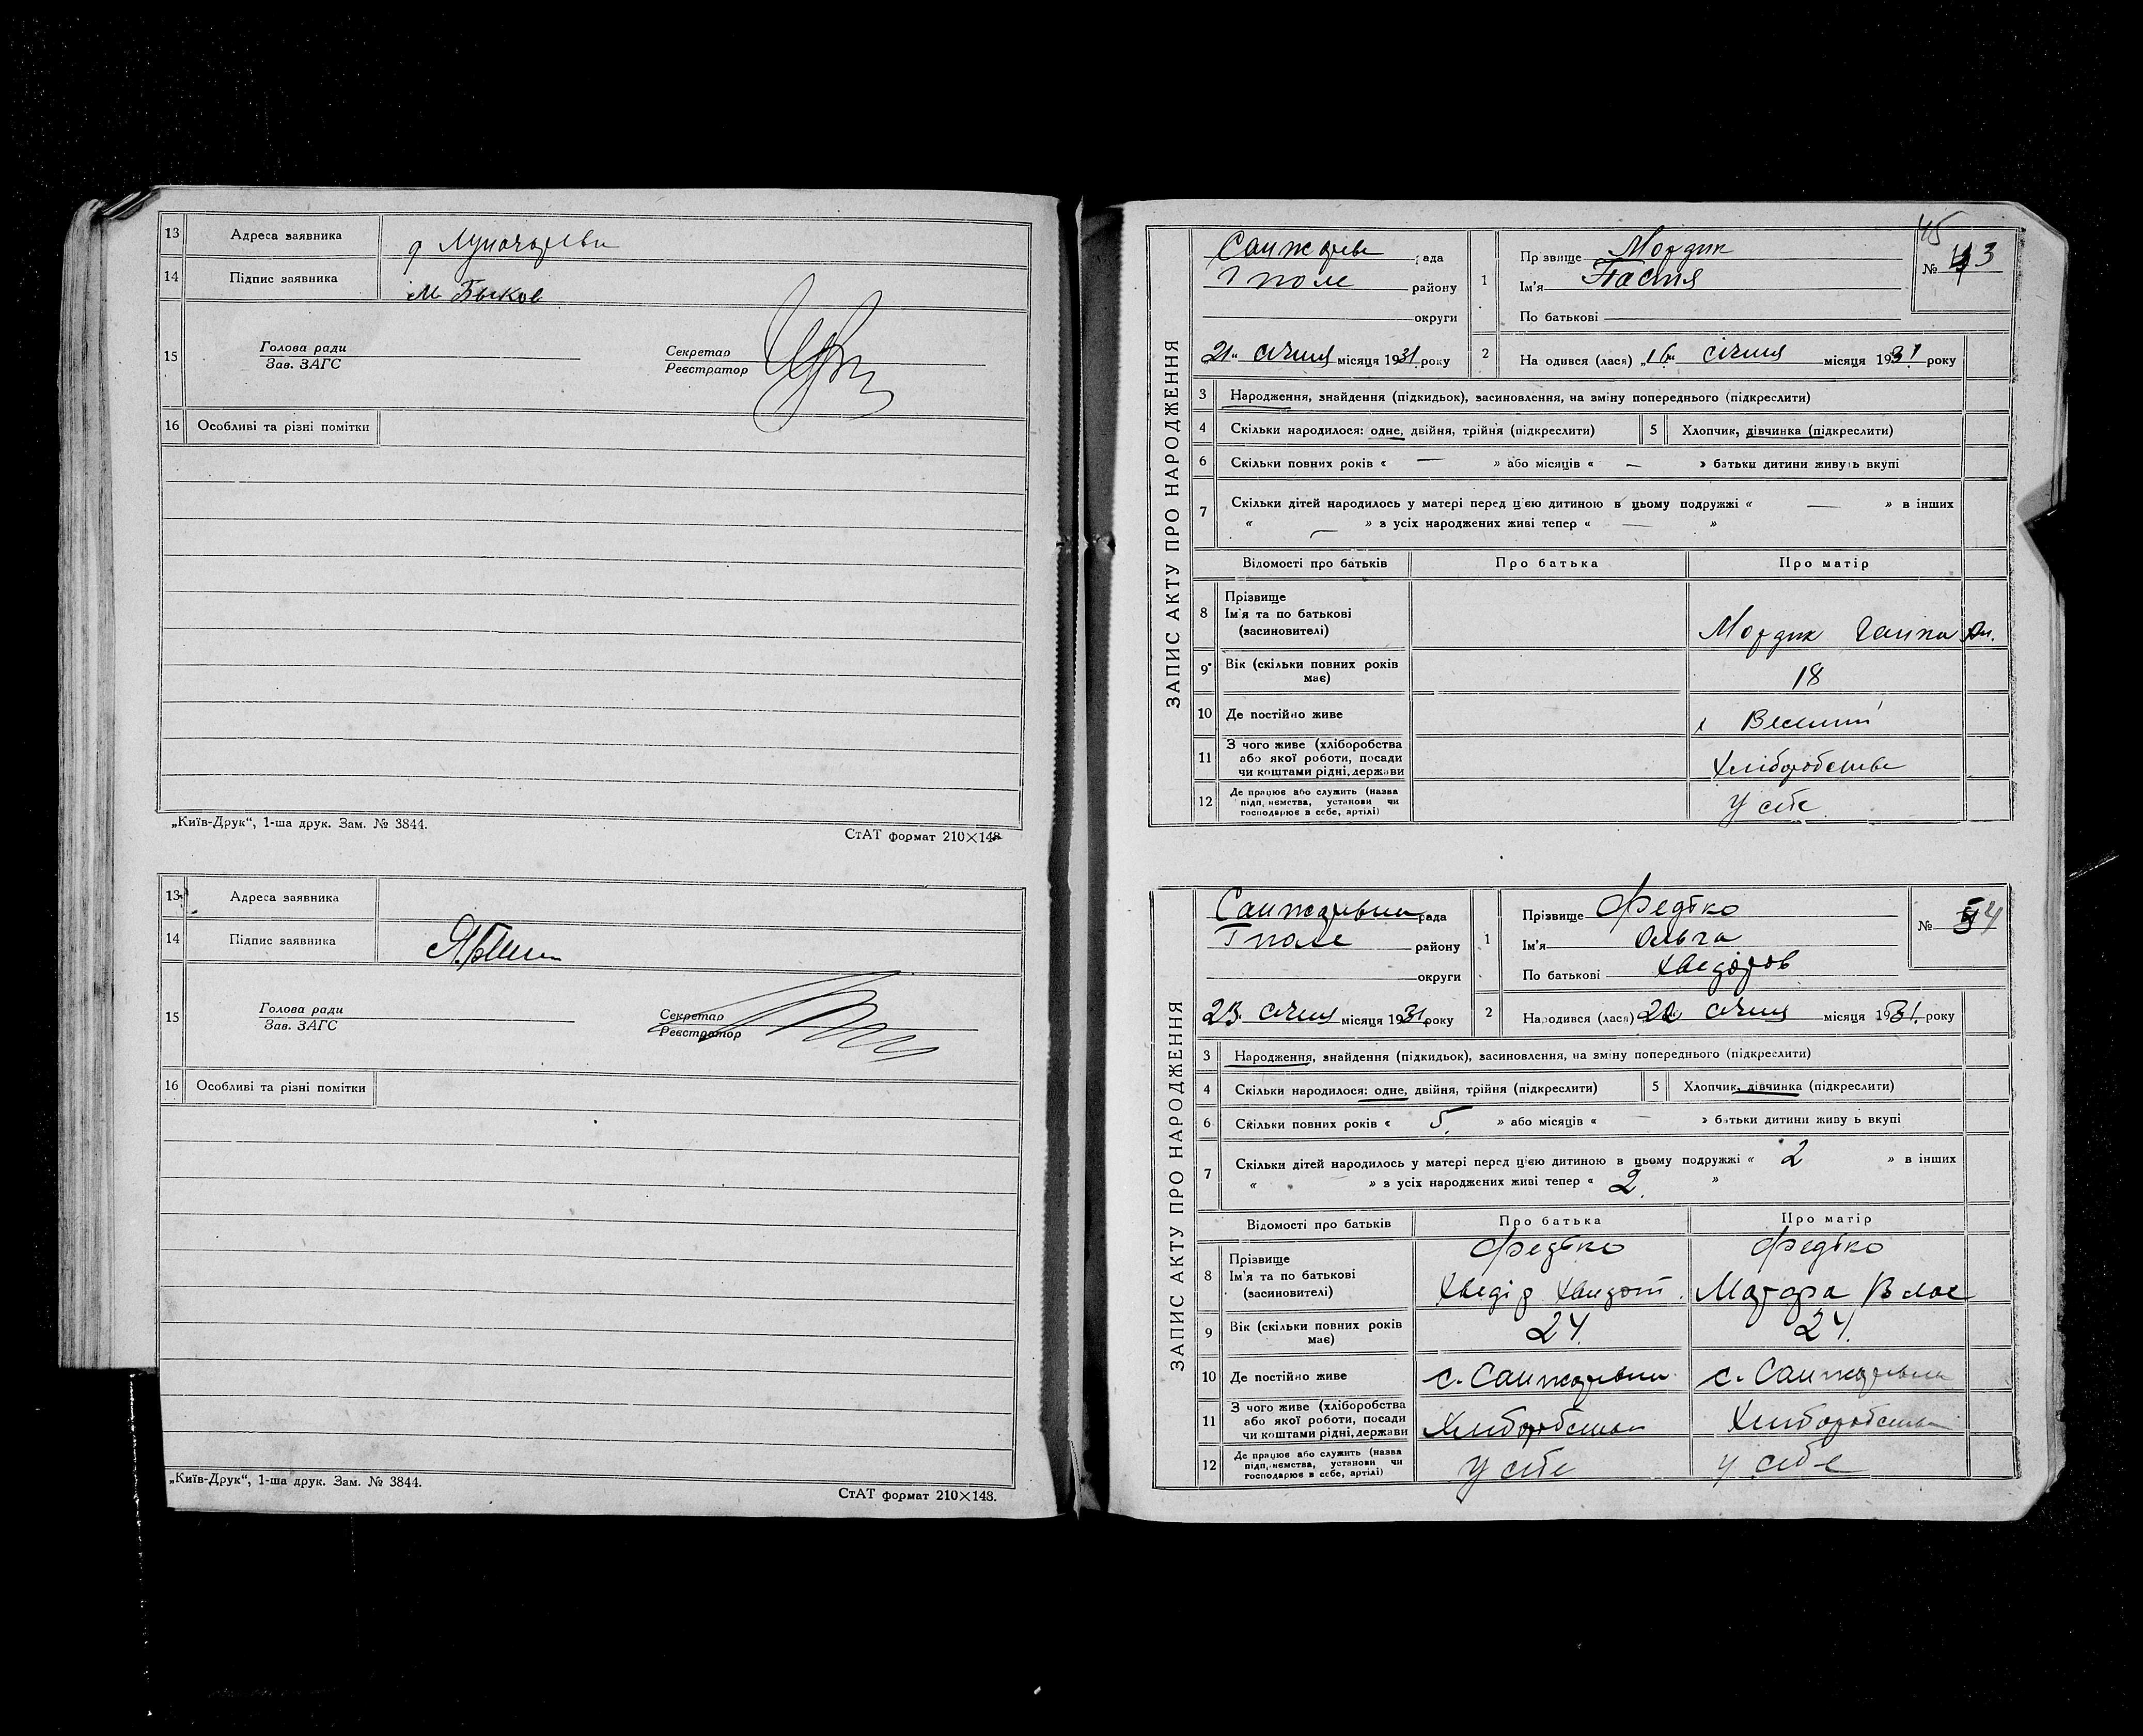 13 Адреса заявника
14 Підпис заявника М Быков
15 Голова ради
Зав. ЗАГС
Секретар
Реєстратор
16 Особливі та різні помітки
„Київ-Друк“, 1-ша друк. Зам. № 3844.
СтАТ формат 210×148
13 Адреса заявника
14 Підпис заявника
15 Голова ради
Зав. ЗАГС
Секретар
Реєстратор
16 Особливі та різні помітки
„Київ-Друк“, 1-ша друк. Зам. № 3844.
СтАТ формат 210×148.
45
ЗАПИС АКТУ ПРО НАРОДЖЕННЯ
рада
району
округи
21 січня місяця 1931 року
1 Прізвище Мордик
Ім'я Настя
По батькові
№ 3
2 Народився (лася) „16 січня місяця 1931 року
3 Народження, знайдення (підкидьок), засиновлення, на зміну попереднього (підкреслити)
4 Скільки народилося: одне, двійня, трійня (підкреслити)
5 Хлопчик, дівчинка (підкреслити)
6 Скільки повних років « — » або місяців « — » батьки дитини живуть вкупі
7 Скільки дітей народилось у матері перед цією дитиною в цьому подружжі « — » в інших
« — » з усіх народжених живі тепер « — »
Відомості про батьків Про батька Про матір
8 Прізвище
Ім'я та по батькові
(засиновителі)
Мордик Ганна
9 Вік (скільки повних років
має)
18
10 Де постійно живе
11 З чого живе (хліборобства
або якої роботи, посади
чи коштами рідні, держави
Хліборобства
12 Де працює або служить (назва
підприємства, установи чи
господарює в себе, артілі)
У себе
ЗАПИС АКТУ ПРО НАРОДЖЕННЯ
рада
району
округи
23 січня місяця 1931 року
1 Прізвище Федько
Ім'я Ольга
По батькові Хведоров
№ 4
2 Народився (лася) 22 січня місяця 1931. року
3 Народження, знайдення (підкидьок), засиновлення, на зміну попереднього (підкреслити)
4 Скільки народилося: одне, двійня, трійня (підкреслити)
5 Хлопчик, дівчинка (підкреслити)
6 Скільки повних років « 5. » або місяців « — » батьки дитини живуть вкупі
7 Скільки дітей народилось у матері перед цією дитиною в цьому подружжі « 2 » в інших
« » з усіх народжених живі тепер « 2. »
Відомості про батьків Про батька Про матір
8 Прізвище
Ім'я та по батькові
(засиновителі)
Федько Федько
Хведір Влас
9 Вік (скільки повних років
має)
24. 24.
10 Де постійно живе
11 З чого живе (хліборобства
або якої роботи, посади
чи коштами рідні, держави
Хліборобства Хліборобства
12 Де працює або служить (назва
підприємства, установи чи
господарює в себе, артілі)
У себе у себе